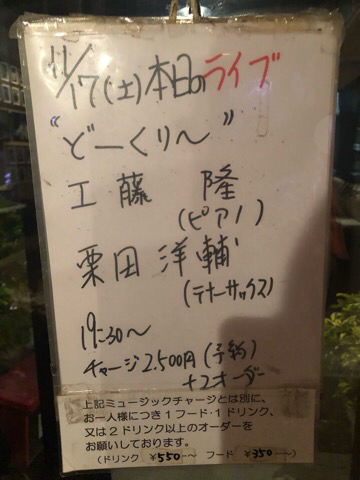 11/17(土)本日のライブ
"どーくり〜"
工藤 隆
(ピアノ)
栗田洋輔
(テナーサックス)
19:30〜
チャージ2.500円(予約)
+2オーダー
上記ミュージックチャージとは別に、
お一人様につき1フード・1ドリンク、
又は2ドリンク以上のオーダーを
お願いしております。
(ドリンク ¥550〜 フード ¥350〜)